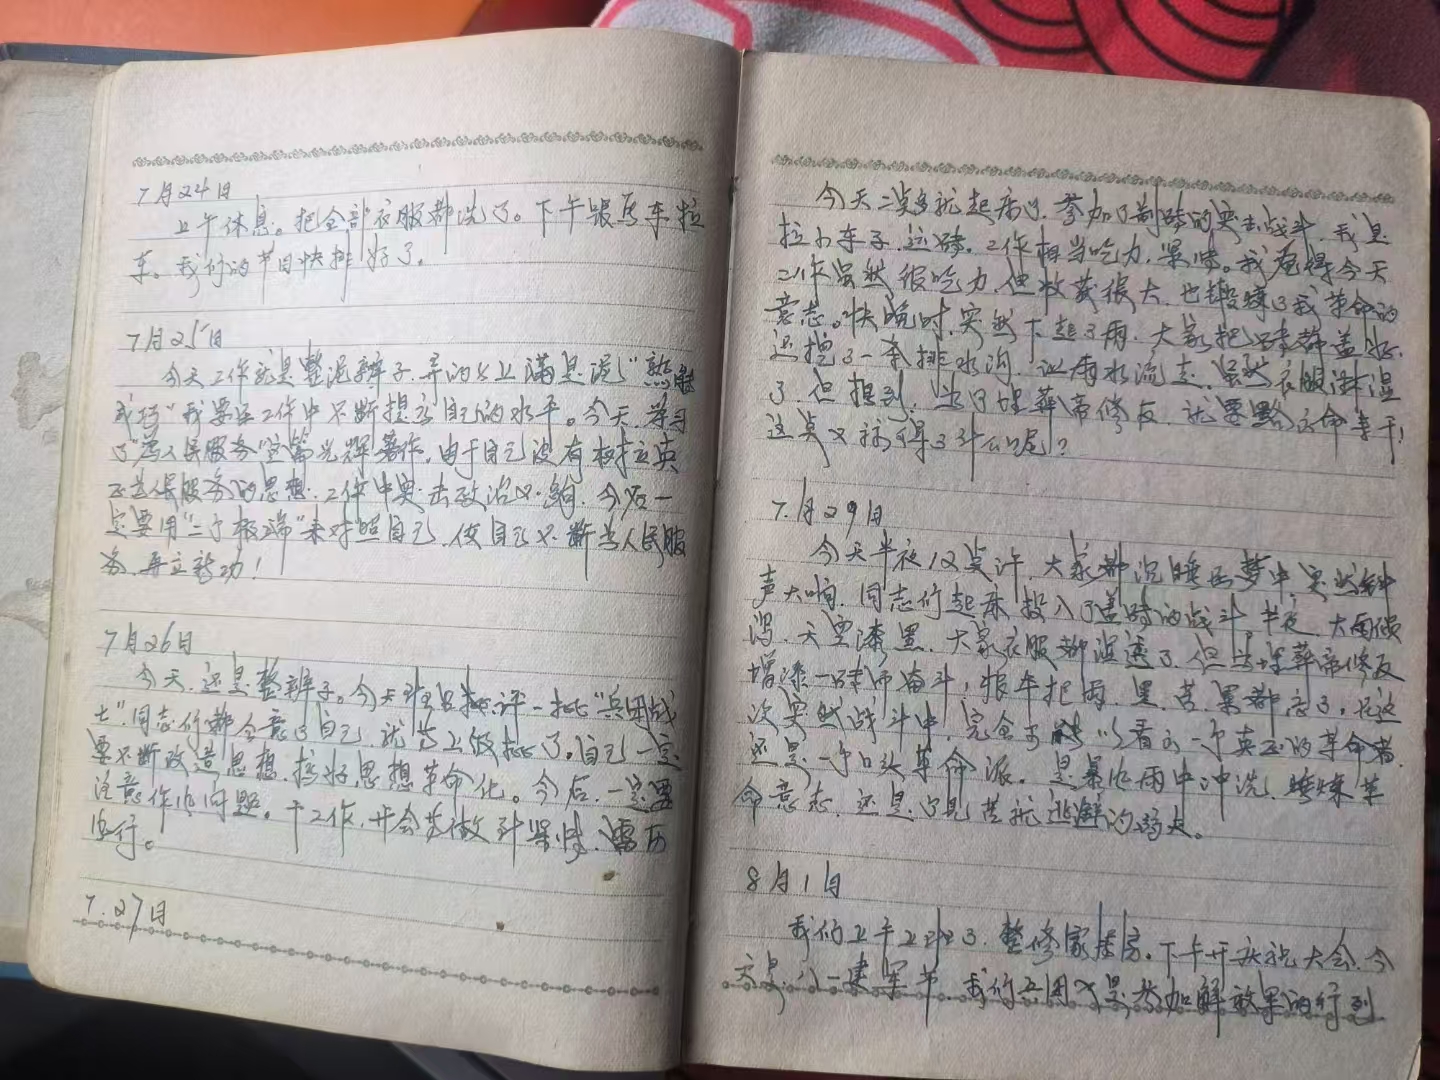 7月24日
上午休息。把全部衣服都洗了。下午跟马车拉
车。我们的节目快排好了。
7月25日
今天工作就是整泥辫子，弄的身上满是泥，"熟能
成巧"我要在工作中不断提高自己的水平。今天，学习
了"为人民服务"这篇光辉著作，由于自己没有树立真
正为人民服务的思想，工作中突击政治又不够，今后一
定要用"二个极端"来对照自己，使自己不断为人民服
务，再立新功！
7月26日
今天，还是整辫子。今天班里批评一批"兵团战
士"，同志们都全意了自己，就马上做批了。自己一定
要不断改造思想，搞好思想革命化。今后，一定要
注意作风问题。干工作，开会等做到紧张、雷厉
风行。
7.27日
今天二点多就起床了，参加了制砖的突击战斗，我是
拉小车子，运砖。工作相当吃力，紧张。我觉得今天
工作虽然很吃力，但收获很大，也锻炼了我革命的
意志。快晚时，突然下起了雨，大家把砖都盖好，
还挖了一条排水沟，让雨水流走，虽然衣服淋湿
了，但想到，为了埋葬帝修反，就要豁出命来干！
这点又算得了什么呢？
7.月29日
今天半夜12点许，大家都沉睡在梦中，突然钟
声大响，同志们起来投入了盖砖的战斗。半夜，大雨倾
泻，天空漆黑，大家衣服都湿透了，但为埋葬帝修反
增添一砖而奋斗，狠牛把雨、黑、苦、累都忘了。在这
次突然战斗中，完全可以看出一个真正的革命者，
还是一个口头革命派。是暴风雨中冲洗，锤炼革
命意志，还是见苦就逃避的弱夫。
8月1日
我们上午上班了，整修家属房。下午开庆祝大会，今
天是八一建军节，我们五周又是参加解放军的行列